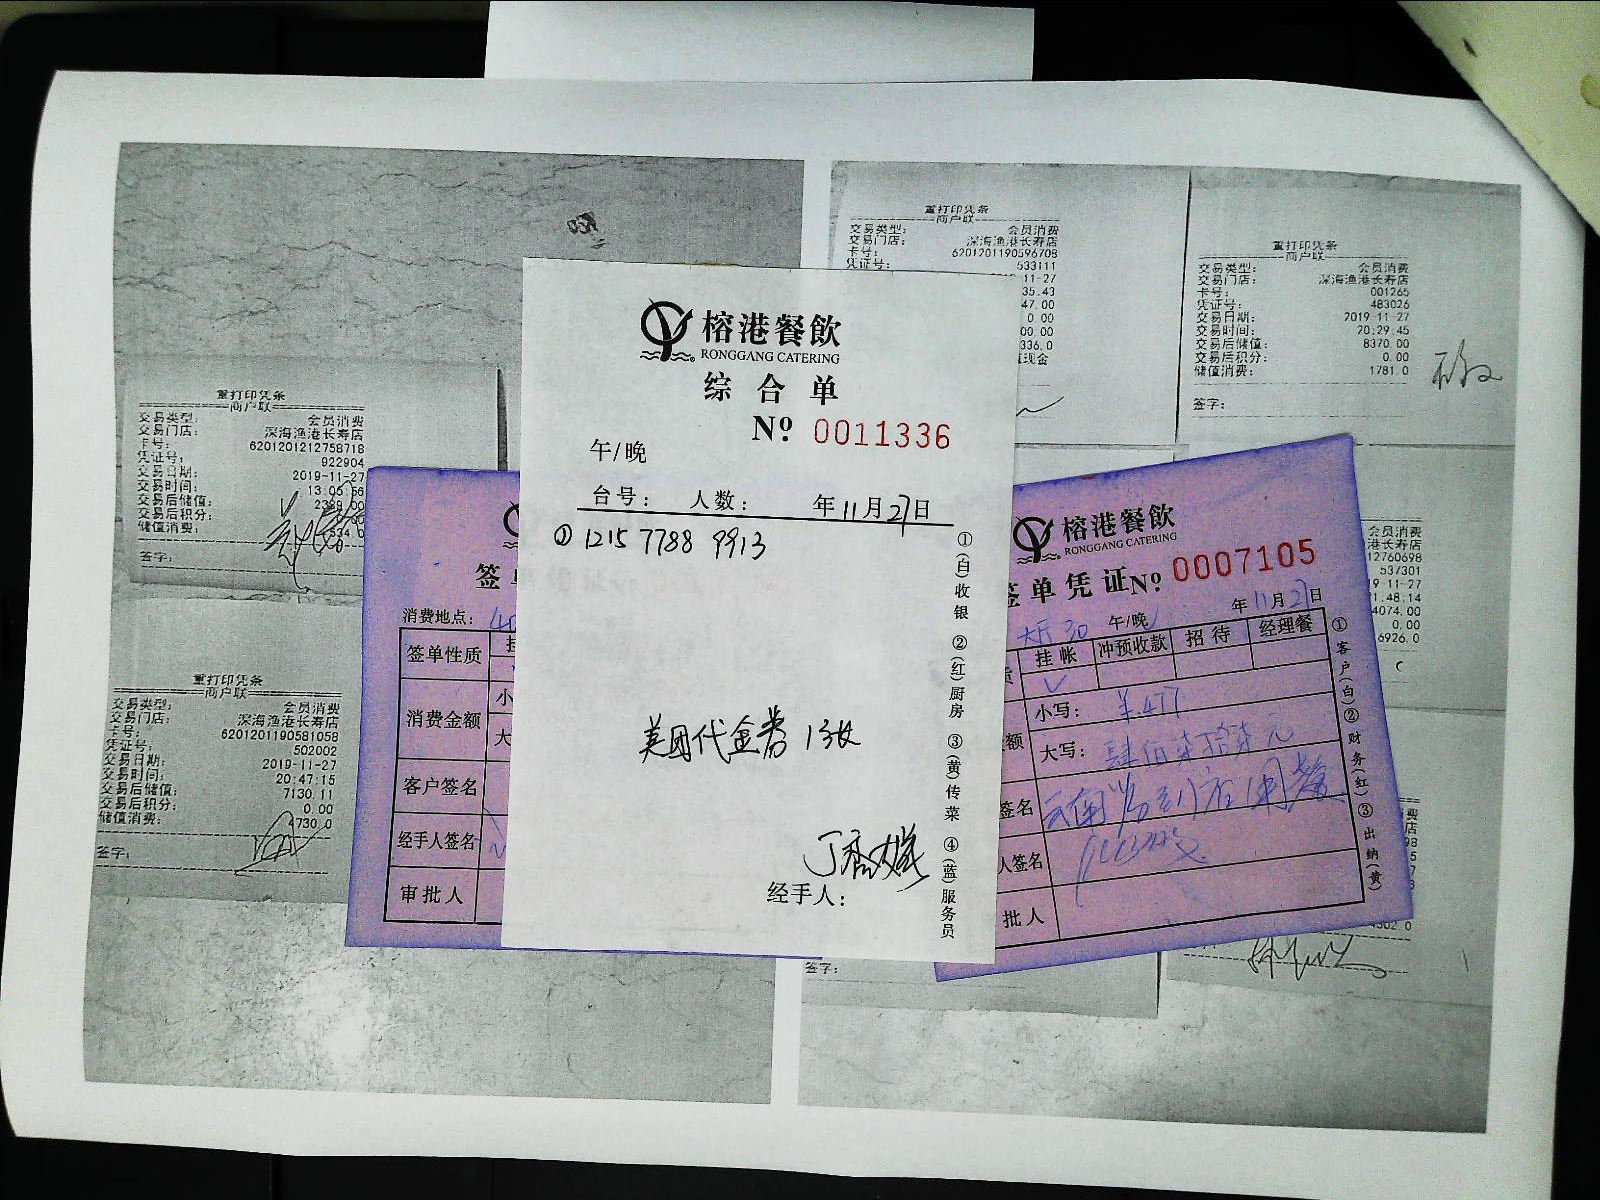 重打印凭条
商户联
交易类型： 会员消费
交易门店： 深海渔港长寿店
卡号： 6201201212758718
凭证号： 922904
交易日期： 2019-11-27
交易时间： 13:05:56
交易后储值：
交易后积分：
储值消费：
签字：
重打印凭条
商户联
交易类型： 会员消费
交易门店： 深海渔港长寿店
卡号： 6201201190581058
凭证号： 502002
交易日期： 2019-11-27
交易时间： 20:47:15
交易后储值： 7130.11
交易后积分： 0.00
储值消费： 4730.0
签字：
消费地点：
签单性质
消费金额
客户签名
经手人签名
审批人
榕港餐飲
RONGGANG CATERING
综合单
Nº 0011336
午/晚
台号： 人数： 年11月27日
① 1215 7788 9913
美团代金券 13张
经手人：
①(白)收银 ②(红)厨房 ③(黄)传菜 ④(蓝)服务员
重打印凭条
商户联
交易类型： 会员消费
交易门店： 深海渔港长寿店
卡号： 6201201190596708
凭证号： 533111
11-27
35.43
47.00
0.00
00.00
336.0
现金
重打印凭条
商户联
交易类型： 会员消费
交易门店： 深海渔港长寿店
卡号： 001265
凭证号： 483026
交易日期： 2019-11-27
交易时间： 20:29:45
交易后储值： 8370.00
交易后积分： 0.00
储值消费： 1781.0
签字：
榕港餐飲
RONGGANG CATERING
签单凭证 Nº 0007105
年11月27日
大厅30 午/晚
挂帐 冲预收款 招待 经理餐
√
小写： ¥477
大写： 肆佰柒拾柒元
签名
人签名
批人
①客户(白)②财务(红)③出纳(黄)
员消费
港长寿店
12760698
537301
9-11-27
1:48:14
4074.00
0.00
6926.0
签字：